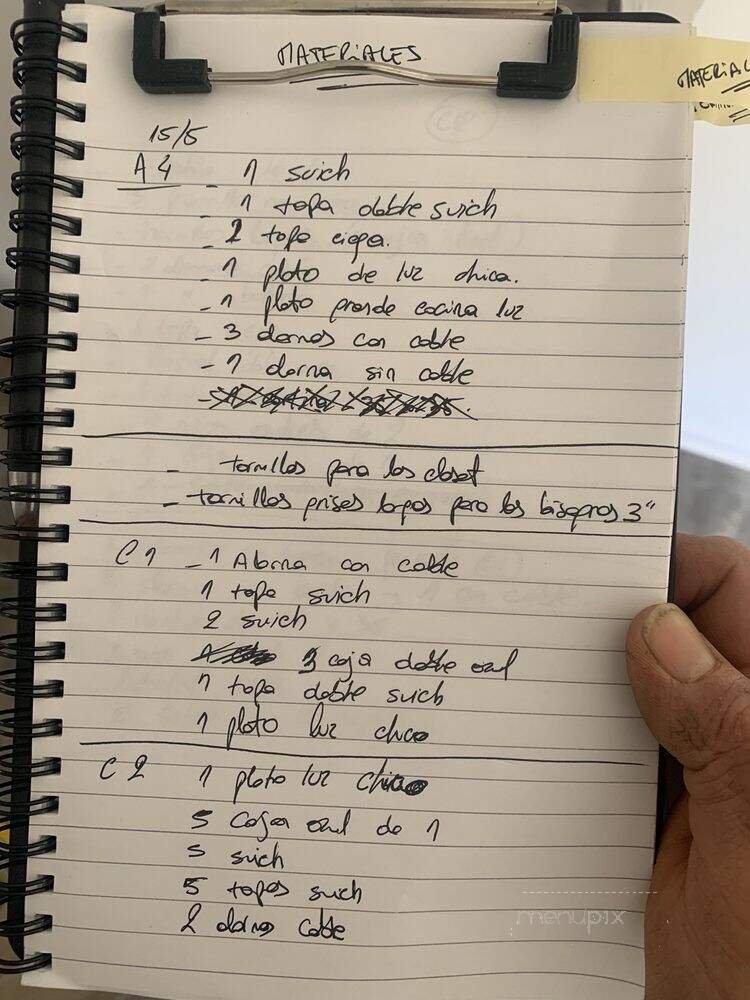 MATERIALES
MATERIAL
15/5
A4 - 1 suich
- 1 tapa doble suich
- 2 tapa ciega.
- 1 plato de luz chica.
- 1 plato grande cocina luz
- 3 dornas con cable
- 1 dorna sin cable
- tornillos para los closet
- tornillos grises largos para los bisagras 3"
C1 - 1 Alorna con cable
1 tapa suich
2 suich
3 caja doble azul
1 tapa doble suich
1 plato luz chico
C2 1 plato luz chico
5 Caja azul de 1
5 suich
5 tapas suich
2 dornas cable
menupix